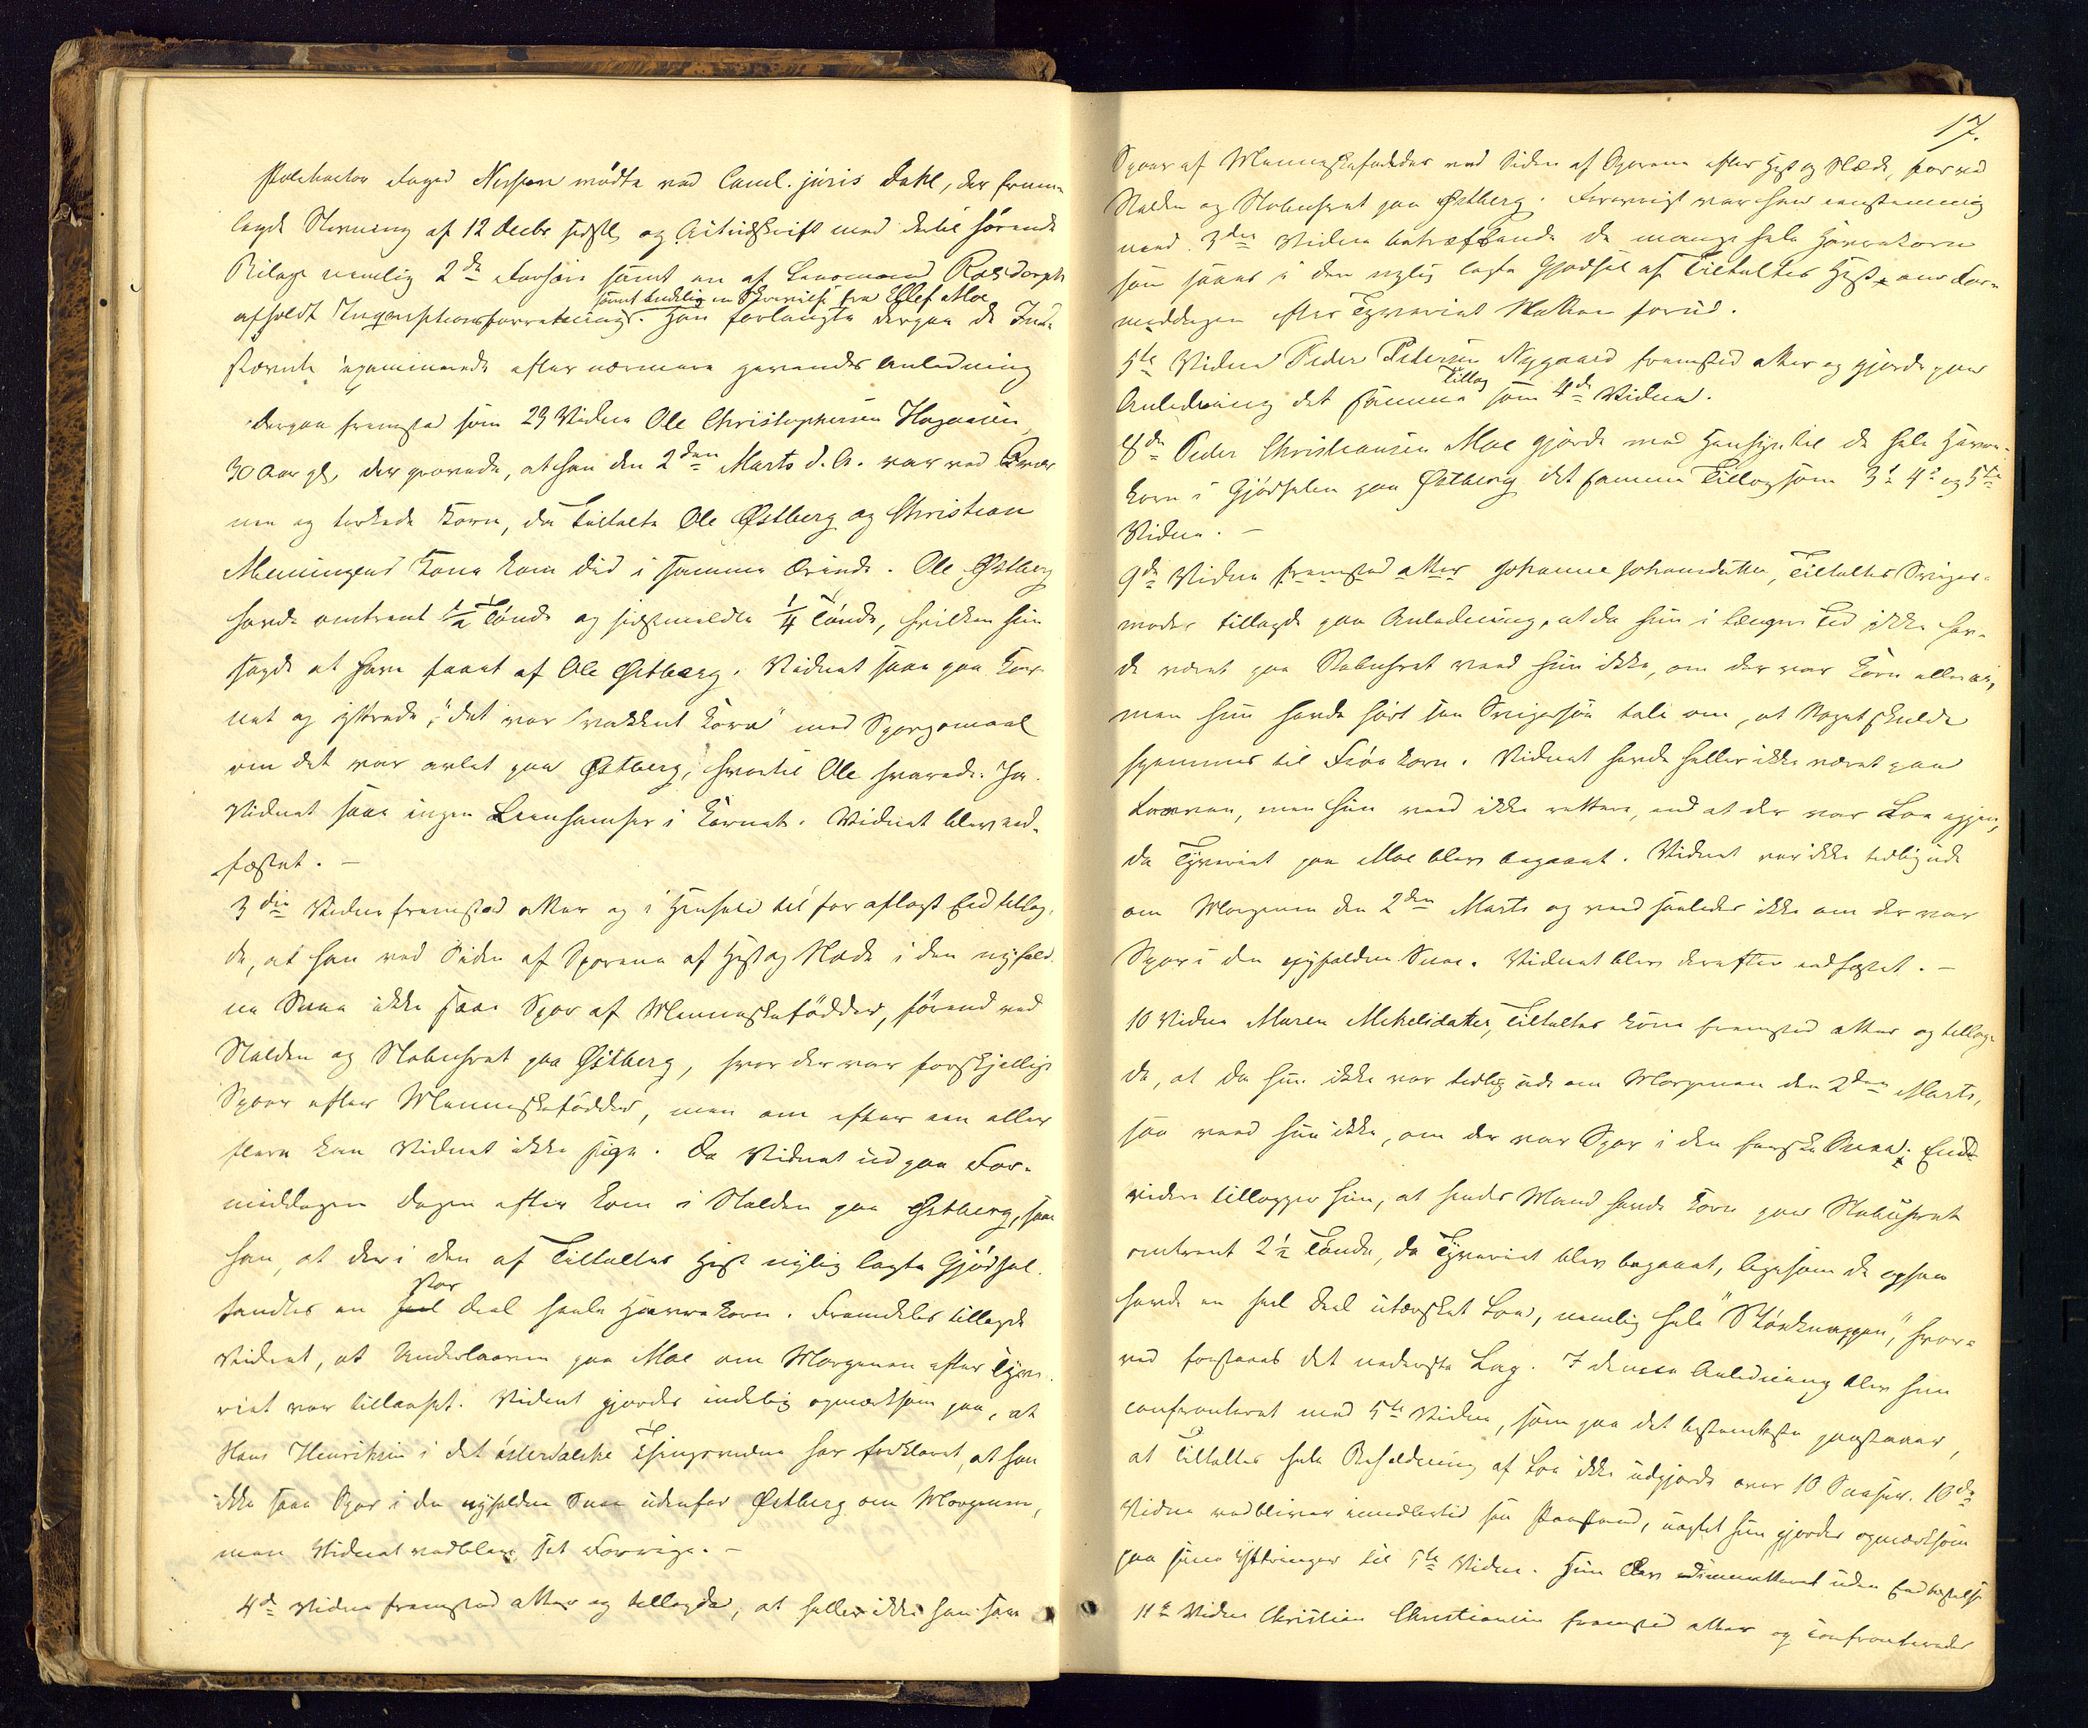 Actor Foged Nissen mødte ved Cand. juris Dahl, der frem-
lagde Stevning af 12 Decbr sidstl. og Actudskrift med dertil hørende
Bilage nemlig 2de Forhør samt en af Lensmand Rolsdorph
samt endelig en Skrivelse fra Ellef Moe
afholdt Inqvisitionsforretning. Han forlangte derpaa de Ind-
stævnte examinerede efter nærmere givendes Anledning
Derpaa fremstod som 23 Vidne Ole Christophersen Hagaasen
30 Aar gl, der provede, at han den 2den Marts d. A. var ved Qvær-
nen og tørkede Korn, da Tiltalte Ole Østberg og Christian
Menningens Kone kom did i samme Ærinde. Ole Østberg
havde omtrent ½ Tønde og sidstmeldte ¼ Tønde, hvilken hun
sagde at have faaet af Ole Østberg. Vidnet saae paa Kor-
net og yttrede, "det var vakkert Korn" med Spørgsmaal
om det var avlet paa Østberg, hvortil Ole svarede: Ja.
Vidnet saae ingen Leenhamser i Kornet. Vidnet blev eed-
fæstet. —
3die Vidne fremstod atter og i Henhold til før aflagt Eed tillag-
de, at han ved Siden af Sporene af Hest og Slæde i den nyfald-
ne Snee ikke saae Spor af Menneskefødder, førend ved
Stalden og Stabuhret paa Østberg, hvor der var forskjellige
Spor efter Menneskefødder, men om efter een eller
flere kan Vidnet ikke sige. Da Vidnet ud paa For-
middagen Dagen efter kom i Stalden paa Østberg, saae
han, at der i den af Tiltaltes Hest nylig lagte Gjødsel
stor
fandtes en heel Deel heele Havrekorn. Fremdeles tillagde
Vidnet, at Underlaaven paa Moe om Morgenen efter Tyve-
riet var tillaaset. Vidnet gjordes endelig opmærksom paa, at
Hans Henriksen i det østerdalske Thingsvidne har forklaret, at han
ikke saae Spor i den nyfaldne Snee udenfor Østberg om Morgenen,
men Vidnet vedblev sit Forrige. —
4de Vidne fremstod atter og tillagde, at heller ikke han saae
17.
Spor af Menneskefødder ved Siden af Sporene efter Hest og Slæde, før ved
Stalden og Stabuhret paa Østberg. Forøvrigt var han eenstemmig
med 3die Vidne betræffende de mange hele Havrekorn
som saaes i den nylig lagte Gjødsel af Tiltaltes Hest om For-
middagen efter Tyveriet Natten forud.
5te Vidne Peder Petersen Nygaard fremstod atter og gjorde paa
Tillæg
Anledning det samme som 4de Vidne.
8de Peder Christiansen Moe gjorde med Hensyn til de hele Havre-
korn i Gjødselen paa Østberg det samme Tillæg som 3die 4de og 5te
Vidne. —
9de Vidne fremstod atter Johanne Johannesdatter, Tiltaltes Sviger-
moder tillagde paa Anledning, at da hun i længere Tid ikke hav-
de været paa Stabuhret veed hun ikke, om der var Korn eller ei,
men hun havde hørt sin Svigersøn tale om, at Noget skulde
gjemmes til Frøe Korn. Vidnet havde heller ikke været paa
Laaven, men hun veed ikke rettere, end at der var Loe igjen,
da Tyveriet paa Moe blev begaaet. Vidnet var ikke tidlig ude
om Morgenen den 2den Marts og veed saaledes ikke om der var
Spor i den nyfaldne Snee. Vidnet blev derefter eedfæstet. —
10 Vidne Maren Mikelsdatter, Tiltaltes Kone fremstod atter og tillag-
de, at da hun ikke var tidlig ude om Morgenen den 2den Marts,
saa veed hun ikke, om der var Spor i den ferske Snee. End-
videre tillægger hun, at hendes Mand havde Korn paa Stabuhret
omtrent 2½ Tønde, da Tyveriet blev begaaet, ligesom de ogsaa
havde en heel Deel utærsket Loe, nemlig hele "Stønknappen", hvor-
ved forstaaes det nederste Lag. I denne Anledning blev hun
confronteret med 5te Vidne, som paa det bestemteste paastaaer,
at Tiltaltes hele Beholdning af Loe ikke udgjorde over 10 Sneeser. 10de
Vidne vedbliver imidlertid sin Paastand, uagtet hun gjordes opmærksom
paa sine Yttringer til 5te Vidne. Hun blev dimitteret uden Eedfæstelse
11te Vidne Christian Christiansen fremstod atter og confronteredes